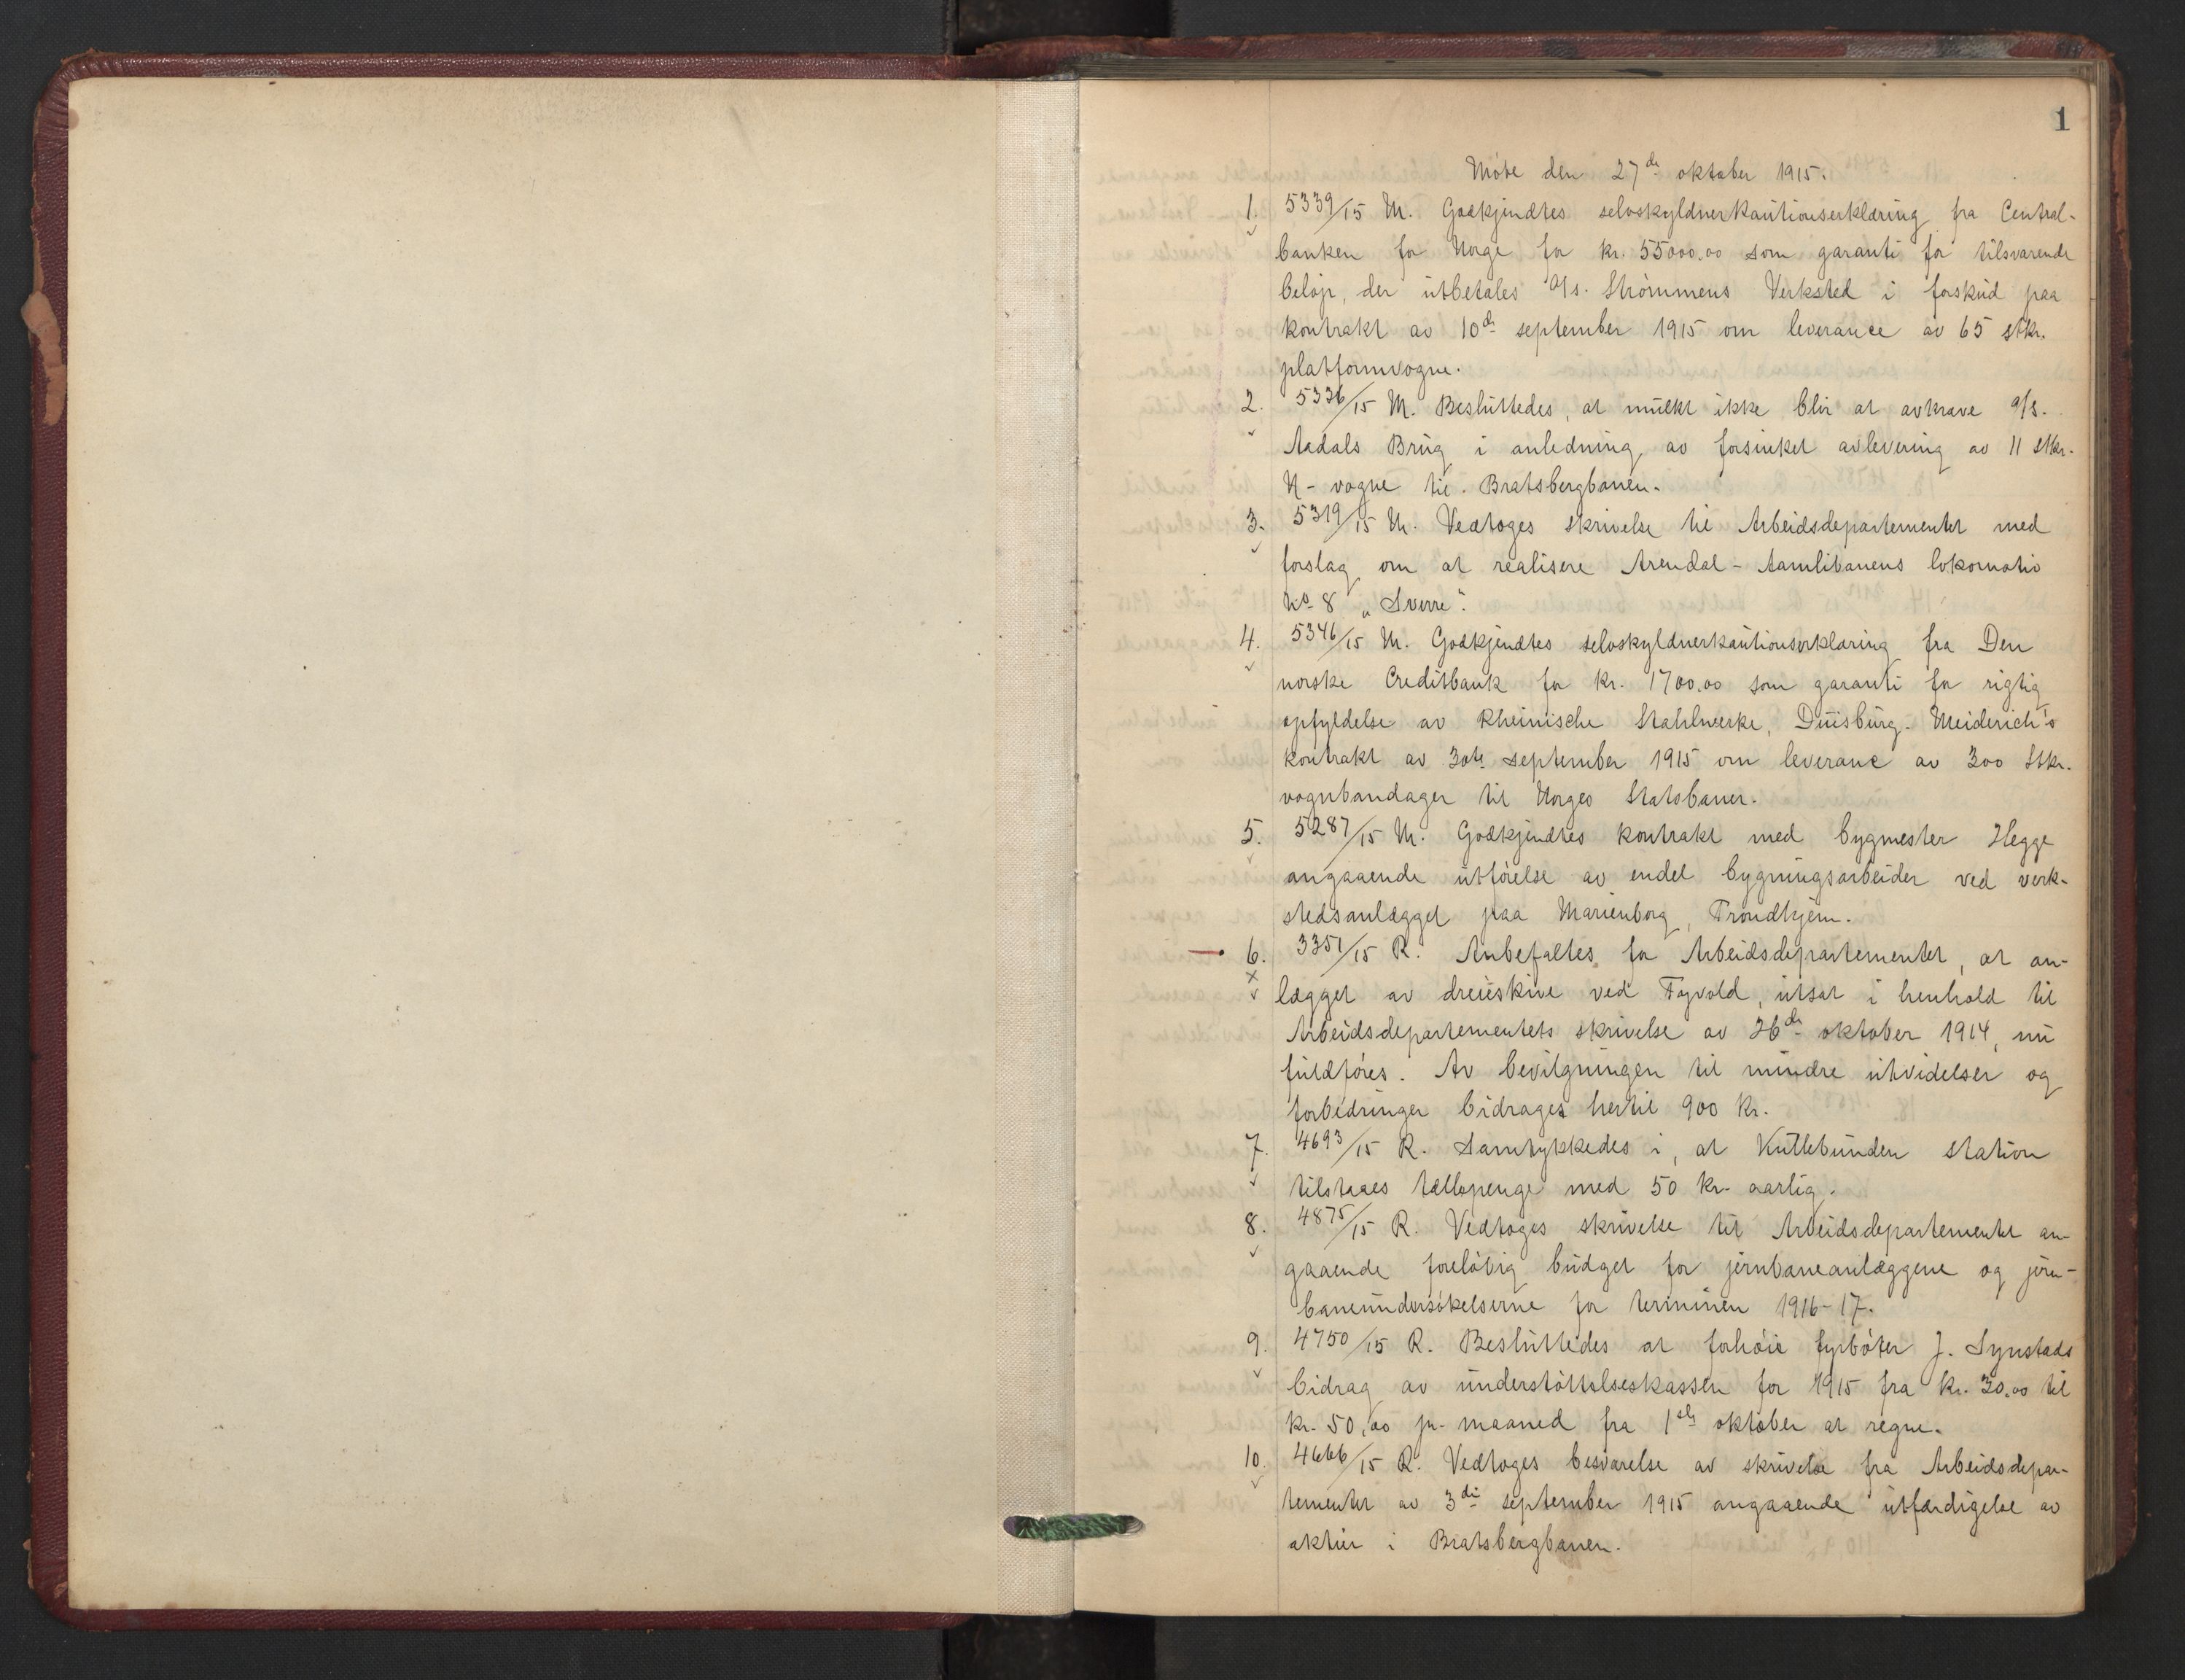 1
Møte den 27de oktober 1915.
1. 5339/15 M. Godkjendtes selvskyldnerkautionserklæring fra Central-
banken for Norge for kr. 55000.00 som garanti for tilsvarende
beløp, der utbetales A/s. Strømmens Verksted i forskud paa
kontrakt av 10de september 1915 om leverance av 65 stkr.
platformvogne.
2. 5336/15 M. Besluttedes, at mulkt ikke blir at avkræve A/s.
Aadals Brug i anledning av forsinket avlevering av 11 stkr.
N-vogne til Bratsbergbanen.
3. 5319/15 M. Vedtoges skrivelse til Arbeidsdepartementet med
forslag om at realisere Arendal-Aamlibanens lokomotiv
No 8 „Sverre".
4. 5346/15 M. Godkjendtes selvskyldnerkautionserklæring fra Den
norske Creditbank for kr. 1700.00 som garanti for rigtig
opfyldelse av Rheinische Stahlwerke, Duisburg-Meiderich's
kontrakt av 30te september 1915 om leveranc av 300 stkr.
vognbandager til Norges Statsbaner.
5. 5287/15 M. Godkjendtes kontrakt med bygmester Hegge
angaaende utførelse av endel bygningsarbeider ved verk-
stedsanlægget paa Marienborg, Trondhjem.
6. 3351/15 R. Anbefaltes for Arbeidsdepartementet, at an-
lægget av dreieskive ved Fagvold, utsat i henhold til
Arbeidsdepartementets skrivelse av 26de oktober 1914, nu
fuldføres. Av bevilgningen til mindre utvidelser og
forbedringer bidrages hertil 900 kr.
7. 4693/15 R. Samtykkedes i, at Kullebunden station
tilstaaes tællepenge med 50 kr. aarlig.
8. 4875/15 R. Vedtoges skrivelse til Arbeidsdepartementet an-
gaaende foreløbig budget for jernbaneanlæggene og jern-
baneundersøkelserne for terminen 1916-17.
9. 4750/15 R. Besluttedes at forhøie fyrbøter J. Synstads
bidrag av understøttelseskassen for 1915 fra kr. 30.00 til
kr. 50.00 pr. maaned fra 1ste oktober at regne.
10. 4666/15 R. Vedtoges besvarelse av skrivelse fra Arbeidsdepar-
tementet av 3die september 1915 angaaende utfærdigelse av
aktier i Bratsbergbanen.